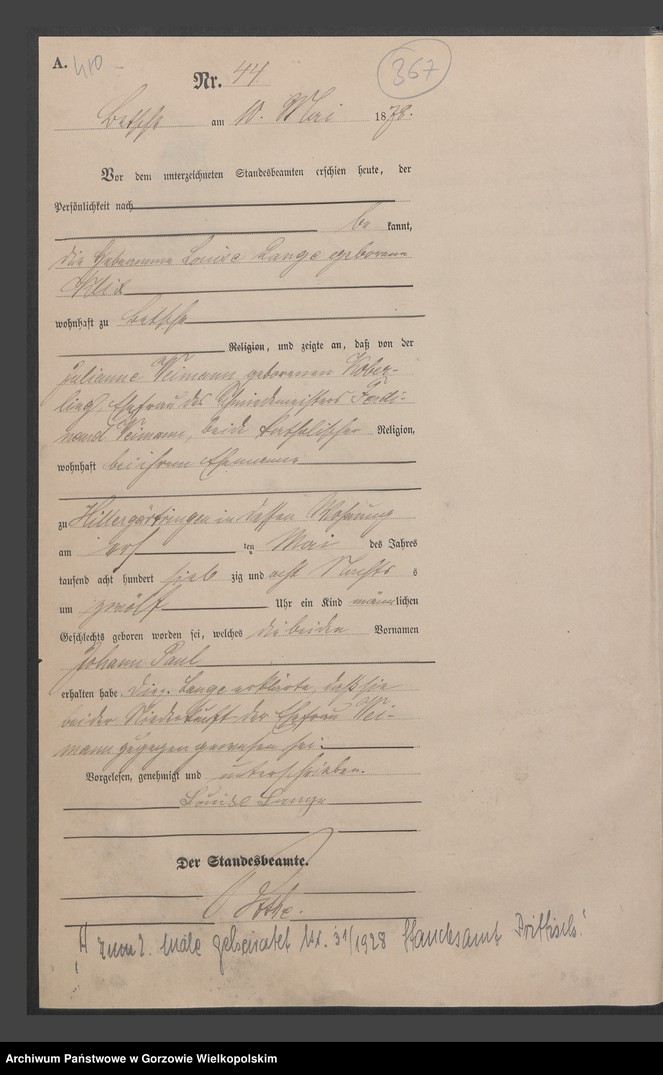 A. 410
Nr. 44
367
Betsche am 10. Mai 1878.
Vor dem unterzeichneten Standesbeamten erschien heute, der
Persönlichkeit nach
be kannt,
die Hebamme Louise Lange geborene
wohnhaft zu Betsche
Religion, und zeigte an, daß von der
Julianne Weimann geborenen Kober-
ling, Ehefrau des Schmiedemeisters Ferdi-
nand Weimann, beide katholischer Religion,
wohnhaft bei ihrem Ehemanne
zu Hillergärtringen in dessen Wohnung
am ten Mai des Jahres
tausend acht hundert sieb zig und acht Nachts s
um zwölf Uhr ein Kind männlichen
Geschlechts geboren worden sei, welches die beiden Vornamen
Johann Paul
erhalten habe. Die Lange erklärte, daß sie
bei der Niederkunft der Ehefrau Wei-
mann zugegen gewesen sei.
Vorgelesen, genehmigt und unterschrieben.
Louise Lange
Der Standesbeamte.
zum 2. male geheiratet Nr. 31/1928 Standesamt
Archiwum Państwowe w Gorzowie Wielkopolskim